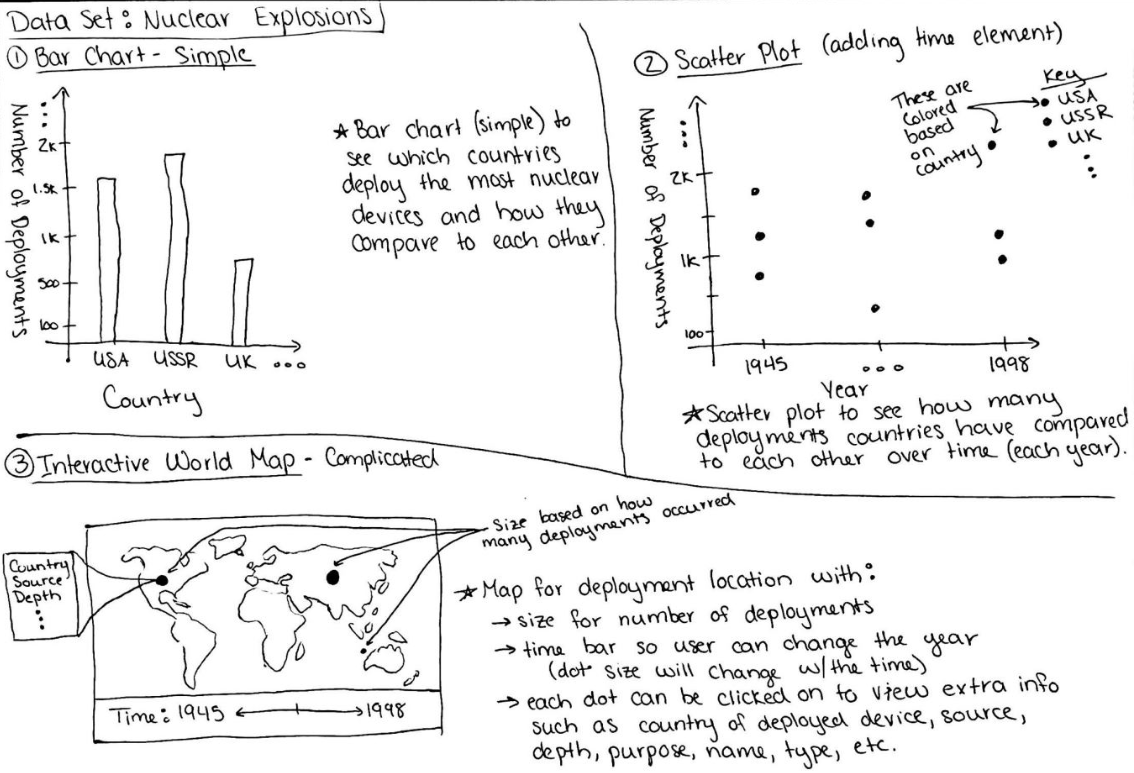 Data Set: Nuclear Explosions
① Bar Chart - Simple
Number of Deployments
2K
1.5K
1K
500
100
USA USSR UK
Country
★ Bar chart (simple) to
see which countries
deploy the most nuclear
devices and how they
compare to each other.
② Scatter Plot (adding time element)
Number of Deployments
2K
1K
100
1945 ... 1998
Year
These are
colored
based
on
country
Key
• USA
• USSR
• UK
★ Scatter plot to see how many
deployments countries have compared
to each other over time (each year).
③ Interactive World Map - Complicated
Country
Source
Depth
Size based on how
many deployments occurred
Time: 1945 ←→ 1998
★ Map for deployment location with:
→ size for number of deployments
→ time bar so user can change the year
(dot size will change w/the time)
→ each dot can be clicked on to view extra info
such as country of deployed device, source,
depth, purpose, name, type, etc.